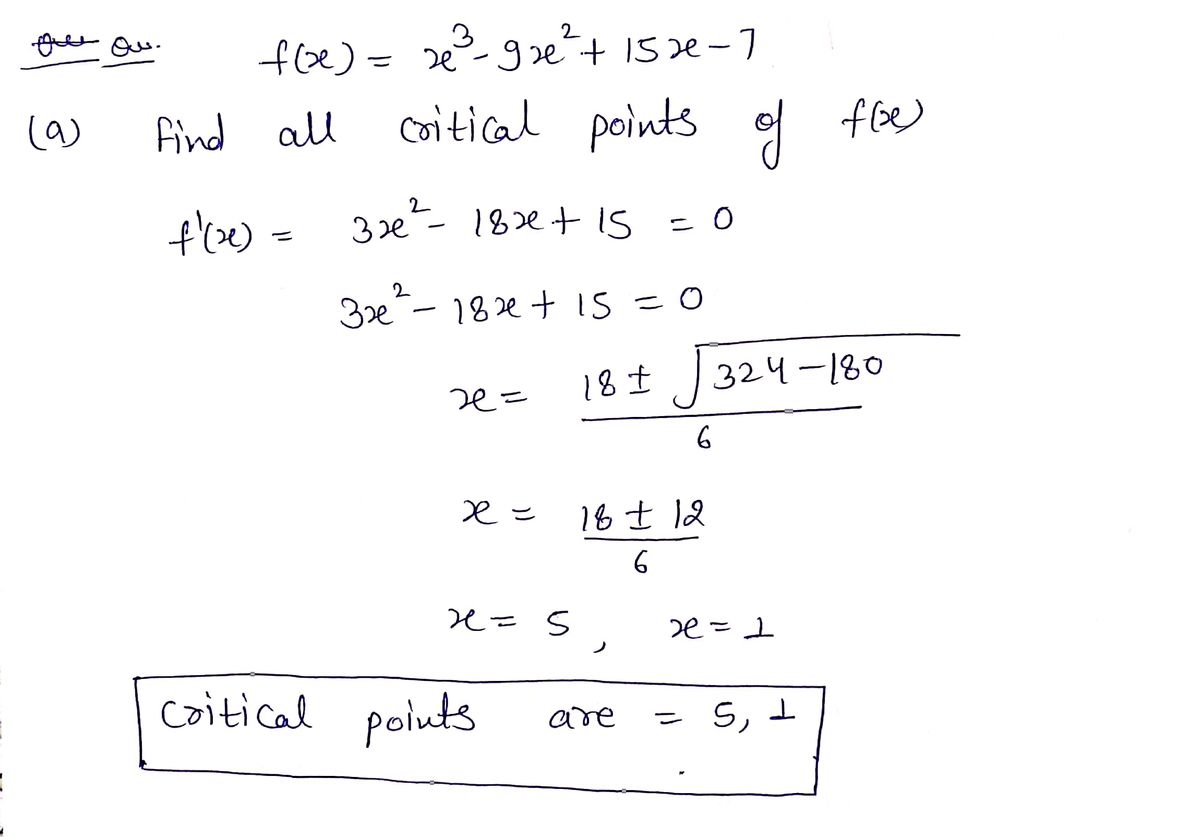 Qu.
f(x) = x³ - 9x² + 15x - 7
(a) find all critical points of f(x)
f'(x) = 3x² - 18x + 15 = 0
3x² - 18x + 15 = 0
x = 18 ± √324 - 180
6
x = 18 ± 12
6
x = 5, x = 1
critical points are = 5, 1